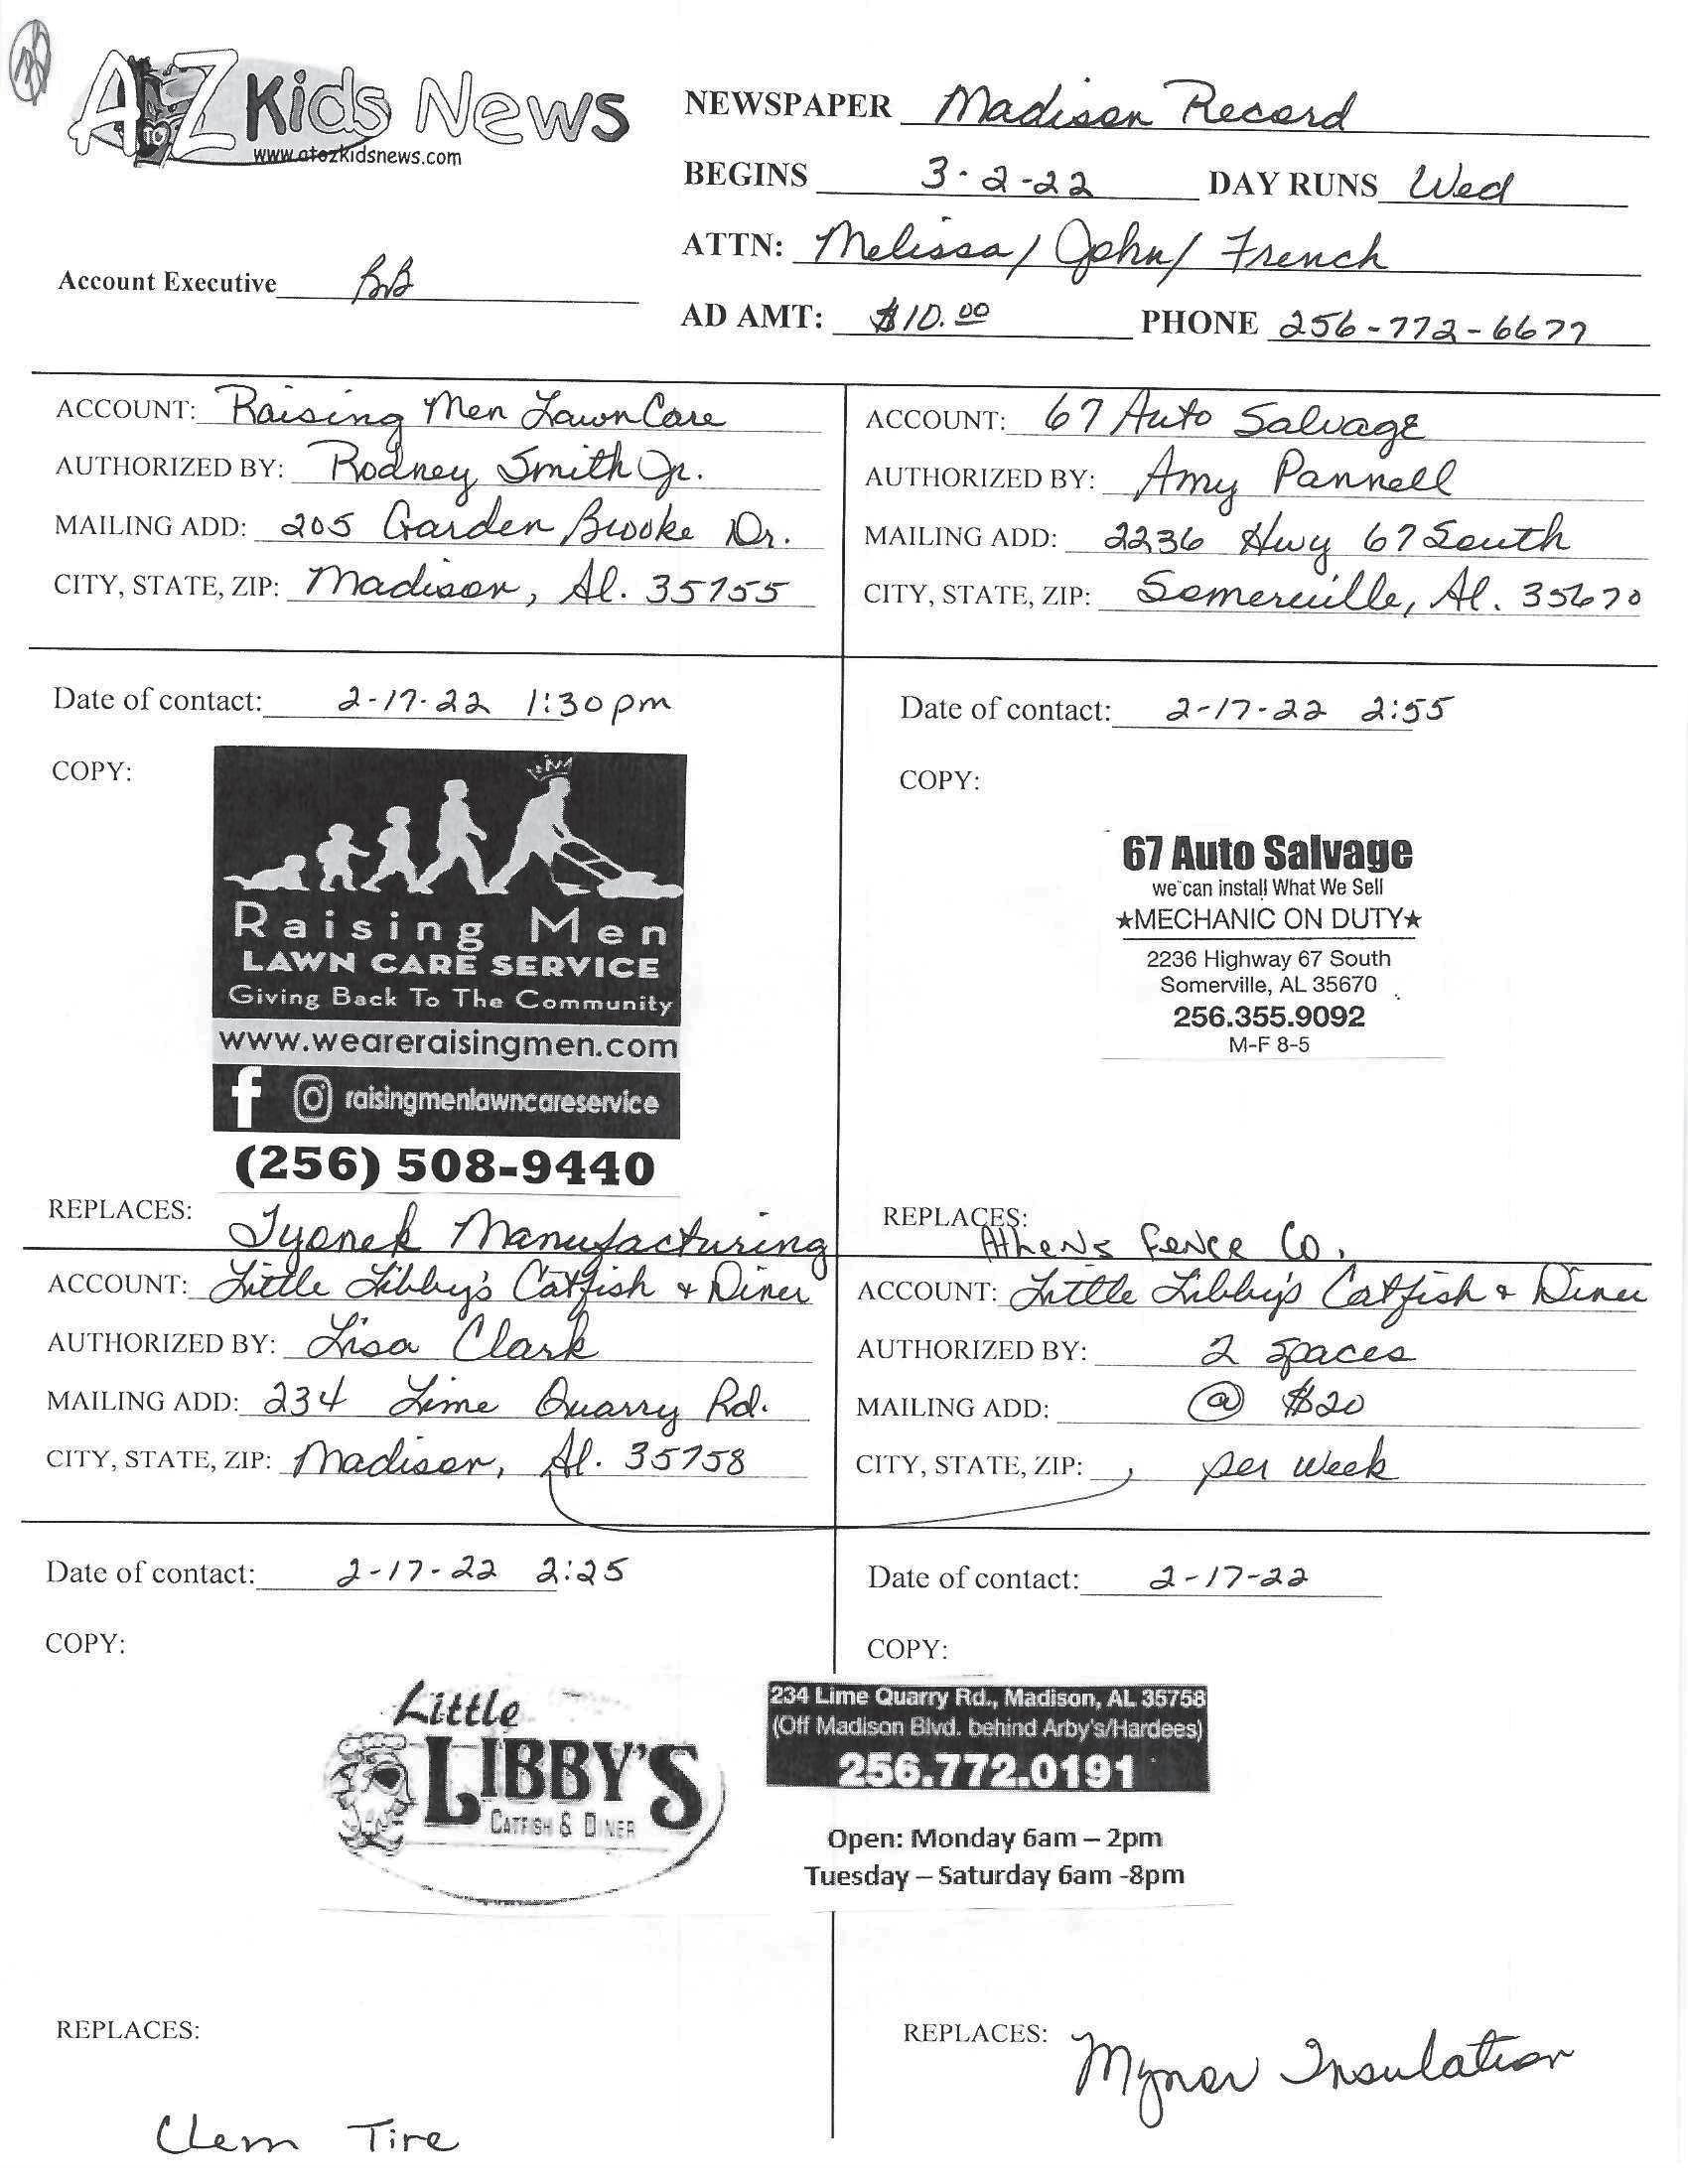 A TO Z Kids News
www.atozkidsnews.com
NEWSPAPER Madison Record
BEGINS 3-2-22 DAY RUNS Wed
ATTN: Melissa / John / French
Account Executive BB
AD AMT: $10.00 PHONE 256-772-6677
ACCOUNT: Raising Men Lawn Care
AUTHORIZED BY: Rodney Smith Jr.
MAILING ADD: 205 Garden Brooke Dr.
CITY, STATE, ZIP: Madison, Al. 35755
Date of contact: 2-17-22 1:30 pm
COPY:
Raising Men
LAWN CARE SERVICE
Giving Back To The Community
www.weareraisingmen.com
f raisingmenlawncareservice
(256) 508-9440
REPLACES: Tyonek Manufacturing
ACCOUNT: 67 Auto Salvage
AUTHORIZED BY: Amy Pannell
MAILING ADD: 2236 Hwy 67 South
CITY, STATE, ZIP: Somerville, Al. 35670
Date of contact: 2-17-22 2:55
COPY:
67 Auto Salvage
we can install What We Sell
★MECHANIC ON DUTY★
2236 Highway 67 South
Somerville, AL 35670
256.355.9092
M-F 8-5
REPLACES: Athens Fence Co.
ACCOUNT: Little Libby's Catfish + Diner
AUTHORIZED BY: Lisa Clark
MAILING ADD: 234 Lime Quarry Rd.
CITY, STATE, ZIP: Madison, Al. 35758
Date of contact: 2-17-22 2:25
COPY:
ACCOUNT: Little Libby's Catfish + Diner
AUTHORIZED BY: 2 spaces
MAILING ADD: @ $20
CITY, STATE, ZIP: per week
Date of contact: 2-17-22
COPY:
Little
LIBBY'S
CATFISH & DINER
234 Lime Quarry Rd., Madison, AL 35758
(Off Madison Blvd. behind Arby's/Hardees)
256.772.0191
Open: Monday 6am – 2pm
Tuesday – Saturday 6am -8pm
REPLACES:
Clem Tire
REPLACES: Mynor Insulation